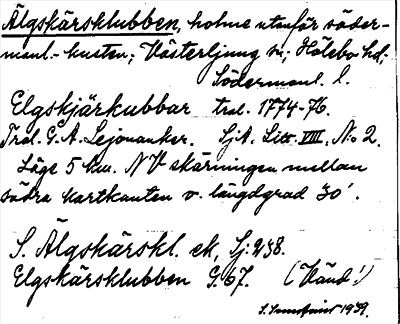 Älgskärsklubben, holme utanför söder-
manl.-kusten; Västerljung sn; Hölebo hd;
Södermanl. l.
Elgskjärkubbar trol. 1774-76.
Trol. G. A. Lejonanker. SjA. Litt. VIII. No 2.
Läge 5 km. NV skärningen mellan
södra kartkanten o. längdgrad 30'.
S. Älgskärskl. ek, Sj:
Elgskärsklubben G. 67. (Händ!)
1939.